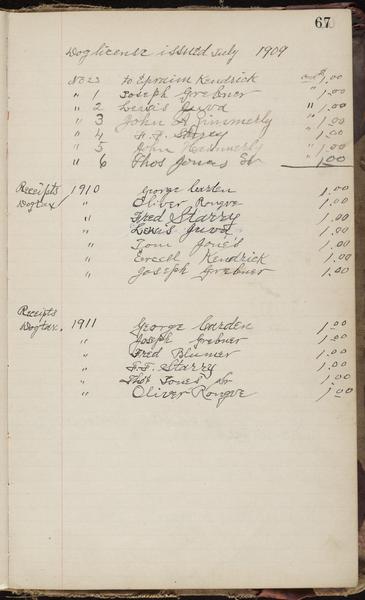 67
Dog license issued July 1909
No 23 to Epraim Kendrick 1.00
" 1 Joseph Grebner " 1.00
" 2 Lewis Juvd " 1.00
" 3 John A Zimmerly " 1.00
" 4 F. F. Starry " 1.00
" 5 John Hammerly " 1.00
" 6 Thos Jones Sr 1.00
Receipts 1910 George Carden 1.00
Dogtax " Oliver Rongve 1.00
" Fred Starry 1.00
" Lewis Juvd 1.00
" Tom Jones 1.00
" Kendrick 1.00
" Joseph Grebner 1.00
Receipts
Dogtax. 1911 George Carden 1.00
" Joseph Grebner 1.00
" Fred Blumer 1.00
" F.F. Starry 1.00
" Thos Jones Sr 1.00
" Oliver Rongve 1.00